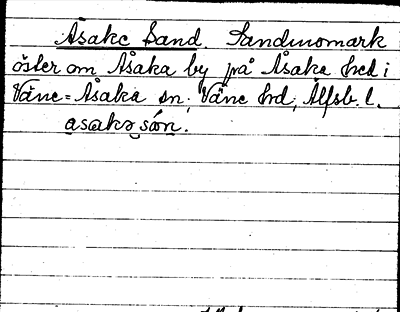 Åsake Sand Sandmomark
öster om Åsaka by på Åsaka hed i
Väne-Åsaka sn, Väne hd, Älfsb. l.
asakə sán.